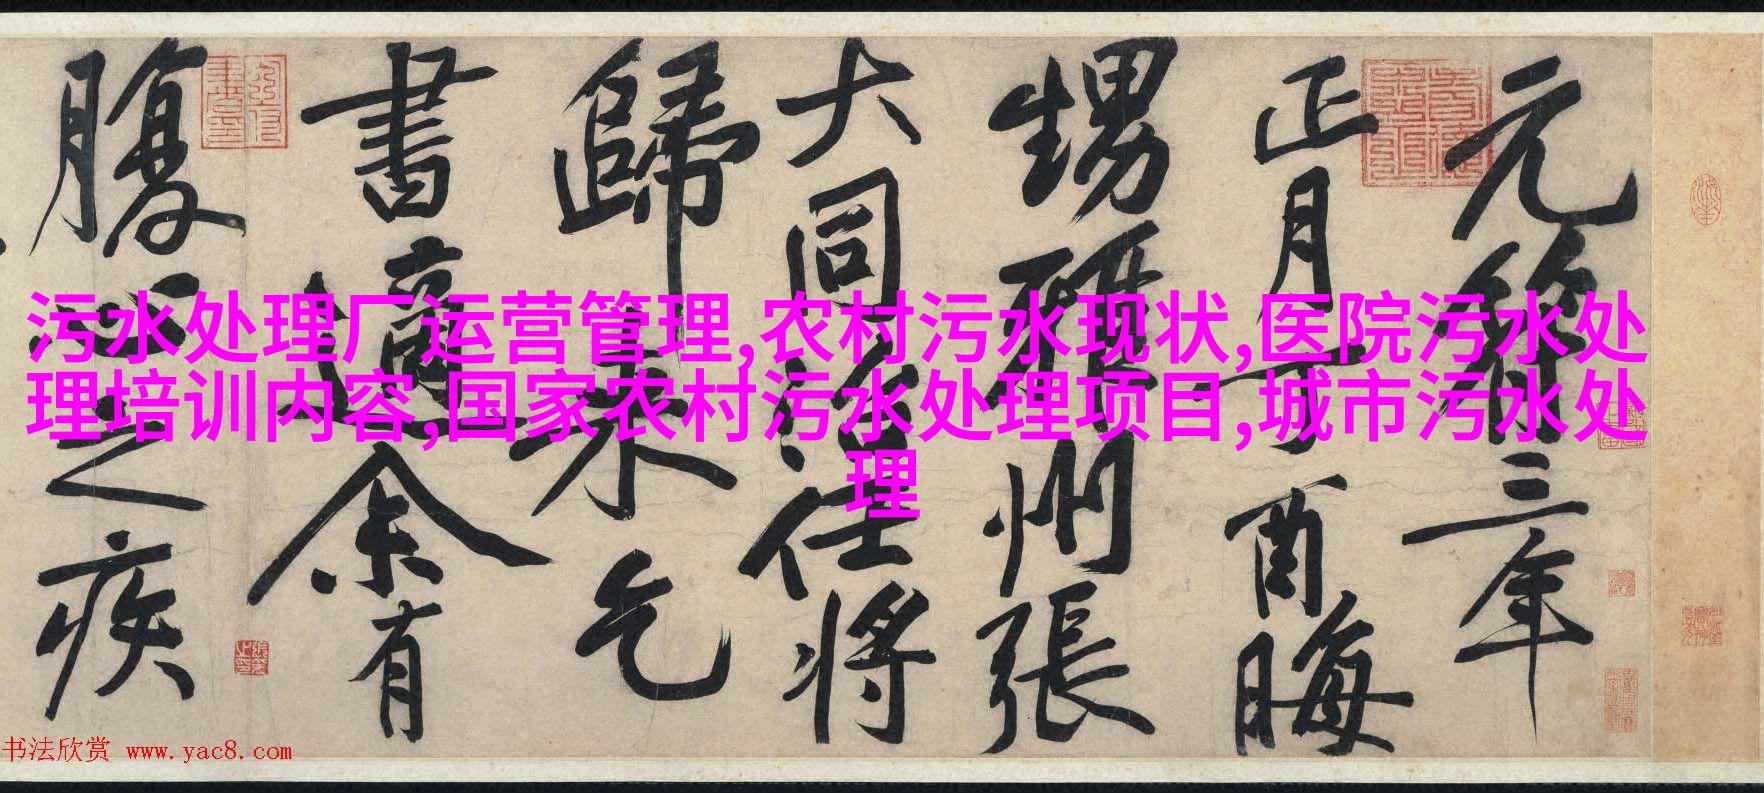 元符三年
正月丁酉晦
甥雅州張
大同治任將
歸來乞
書適余有
腹心之疾
污水处理厂运营管理,农村污水现状,医院污水处
理培训内容,国家农村污水处理项目,城市污水处
理
书法欣赏 www.yac8.com